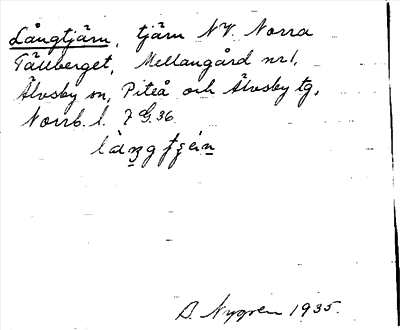 Långtjärn, tjärn NV. Norra
Tällberget, Mellangård nr 1,
Älvsby sn, Piteå och Älvsby tg,
Norrb. l. 7 G. 36.
B. Nygren 1935.